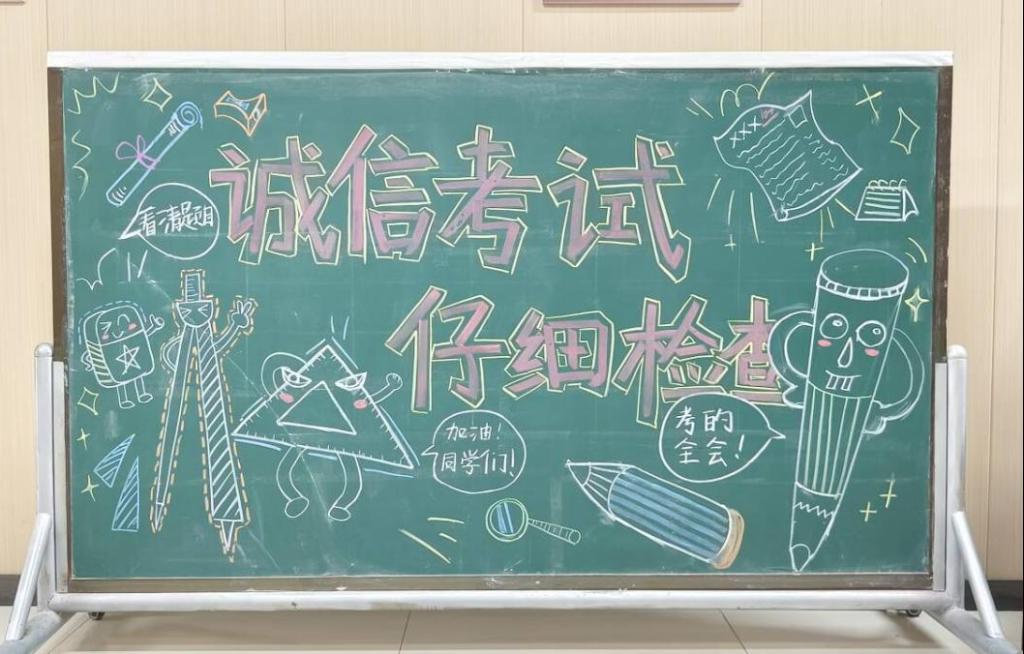 诚信考试
看清题目
仔细检查
加油！
同学们！
考的
全会！